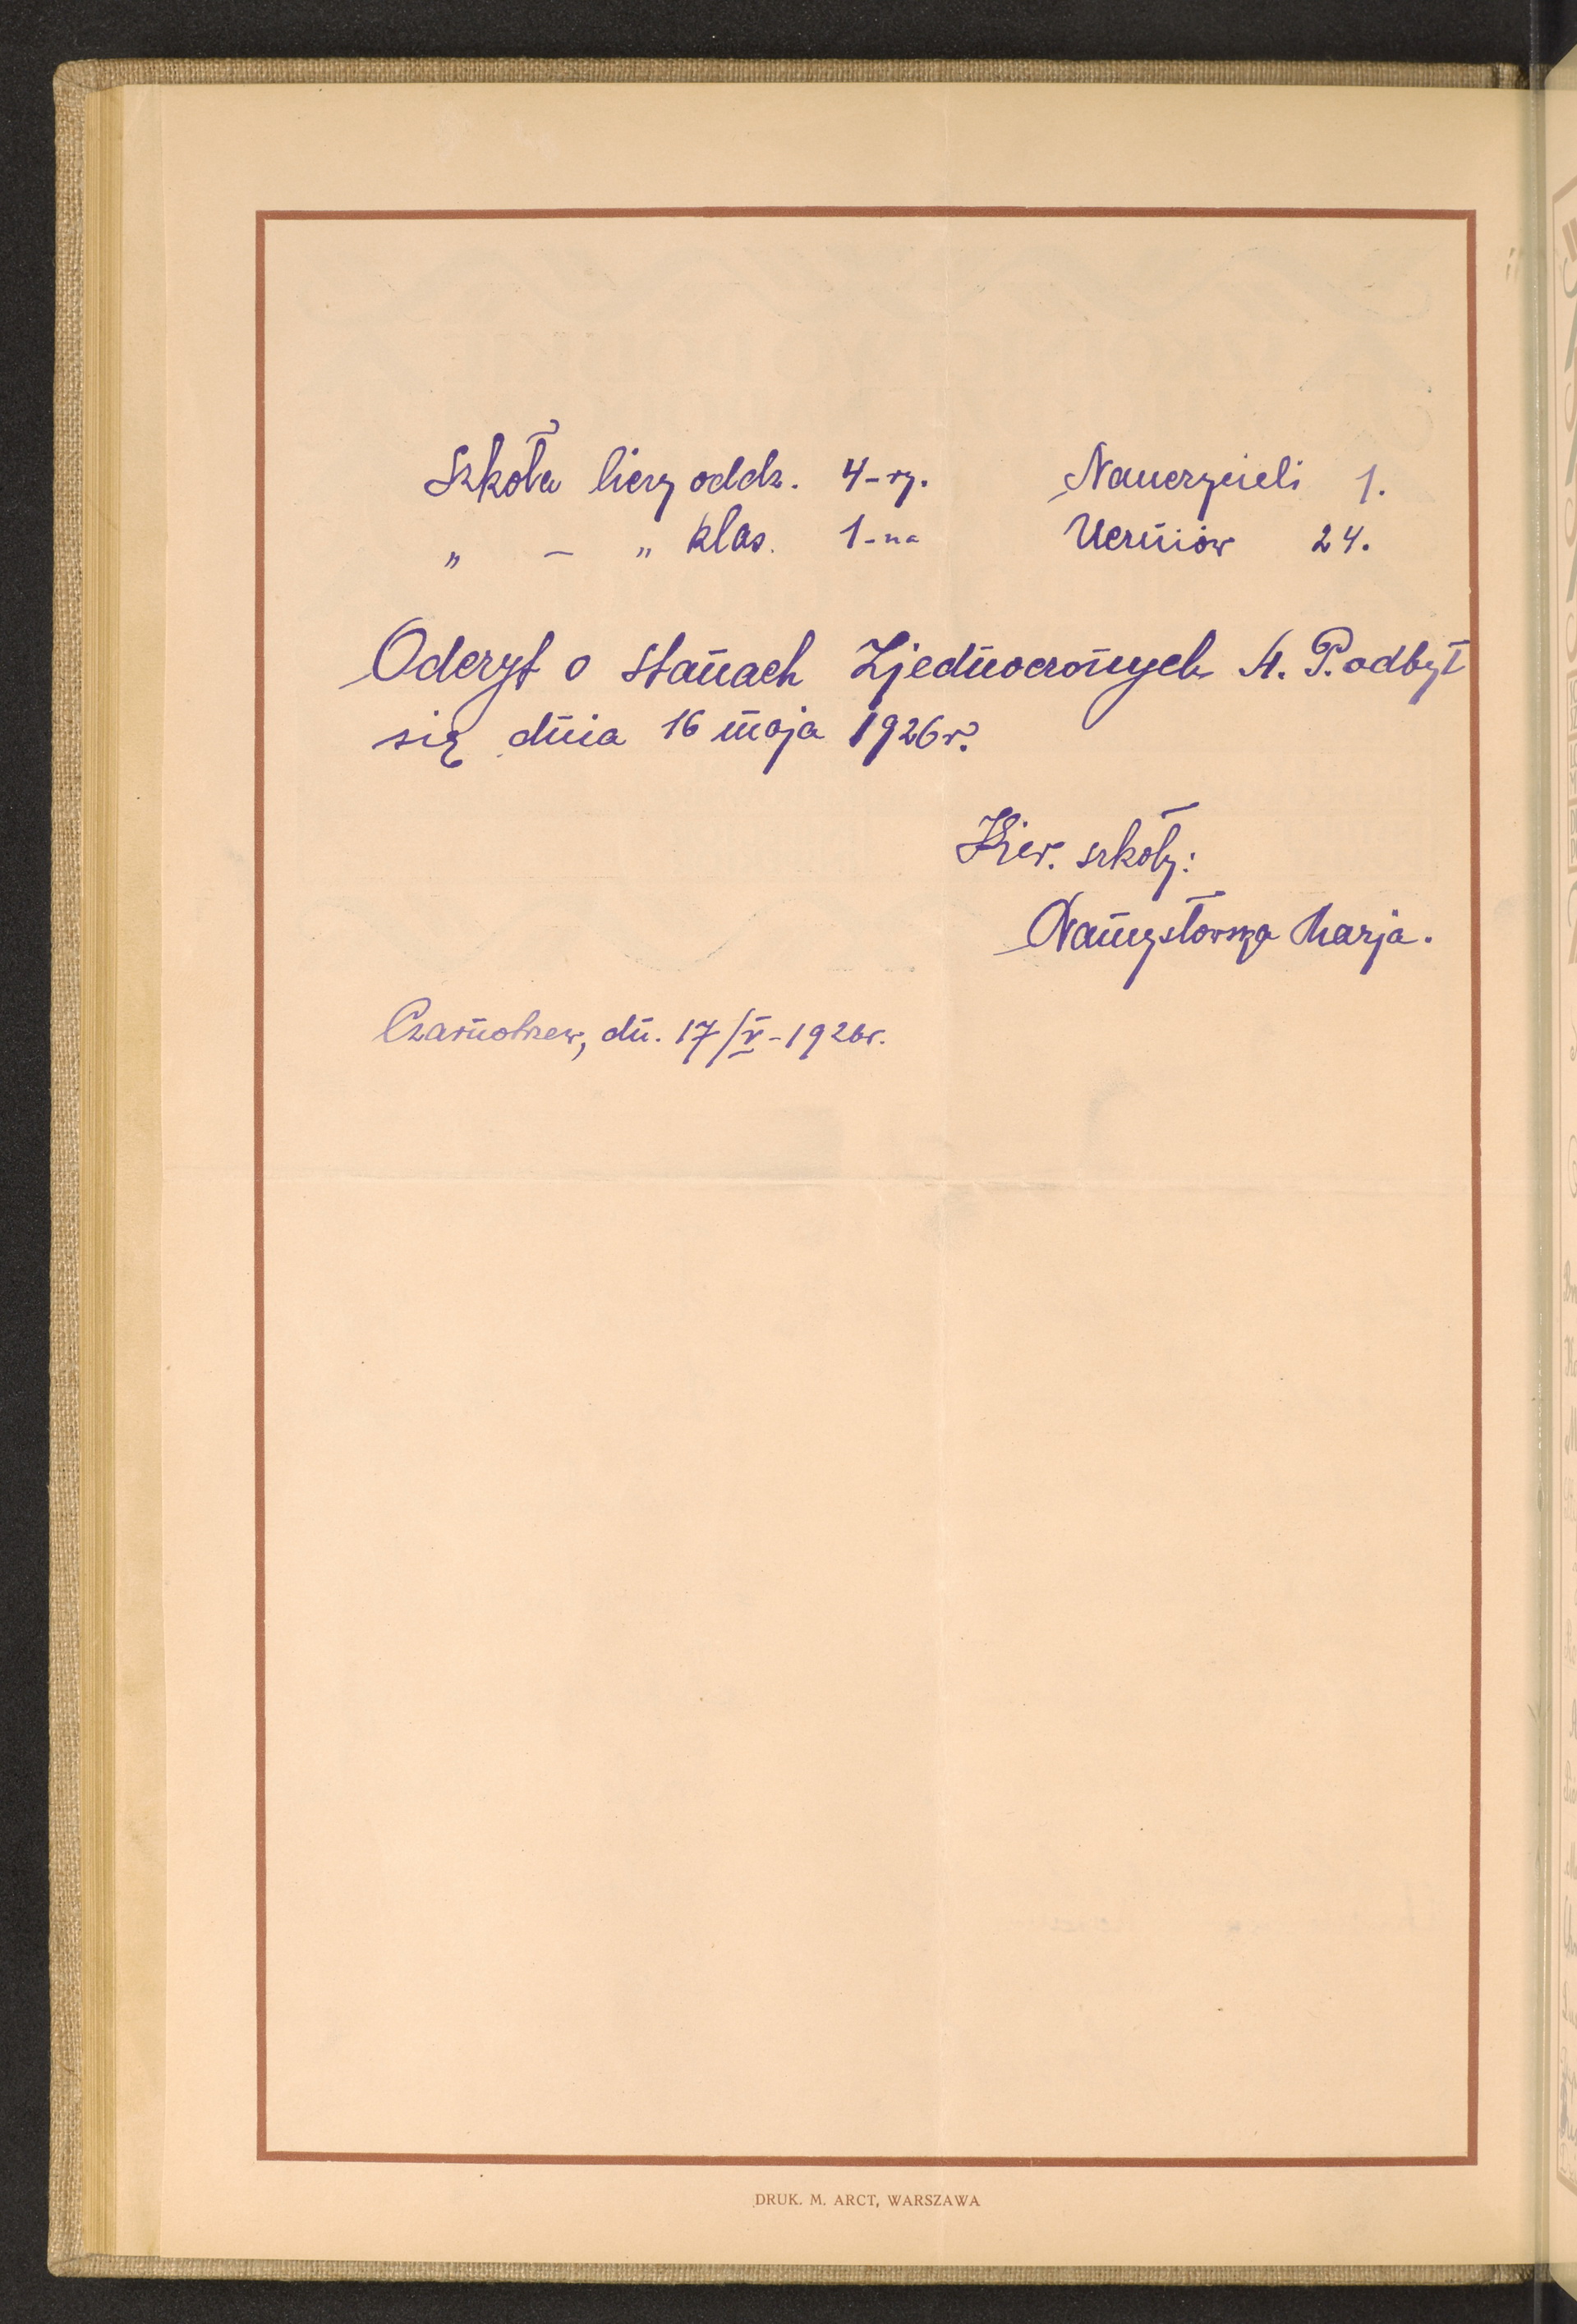 Szkoła liczy oddz. 4-ry. Nauczycieli 1.
„ – „ klas. 1-na Uczniów 24.
Odczyt o Stanach Zjednoczonych A. P. odbył
się dnia 16 maja 1926 r.
Kier. szkoły:
Namysłowska Marja.
Czarnotrzew, dn. 17/V-1926r.
DRUK. M. ARCT, WARSZAWA